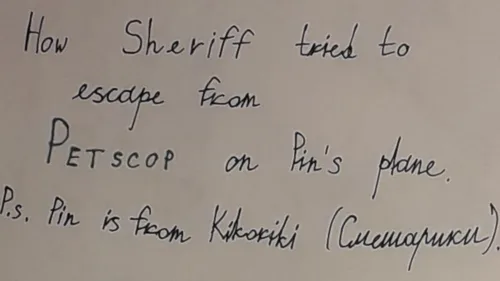 How Sheriff tried to
escape from
PETSCOP on Pin's plane.
P.s. Pin is from Kikoriki (Смешарики).